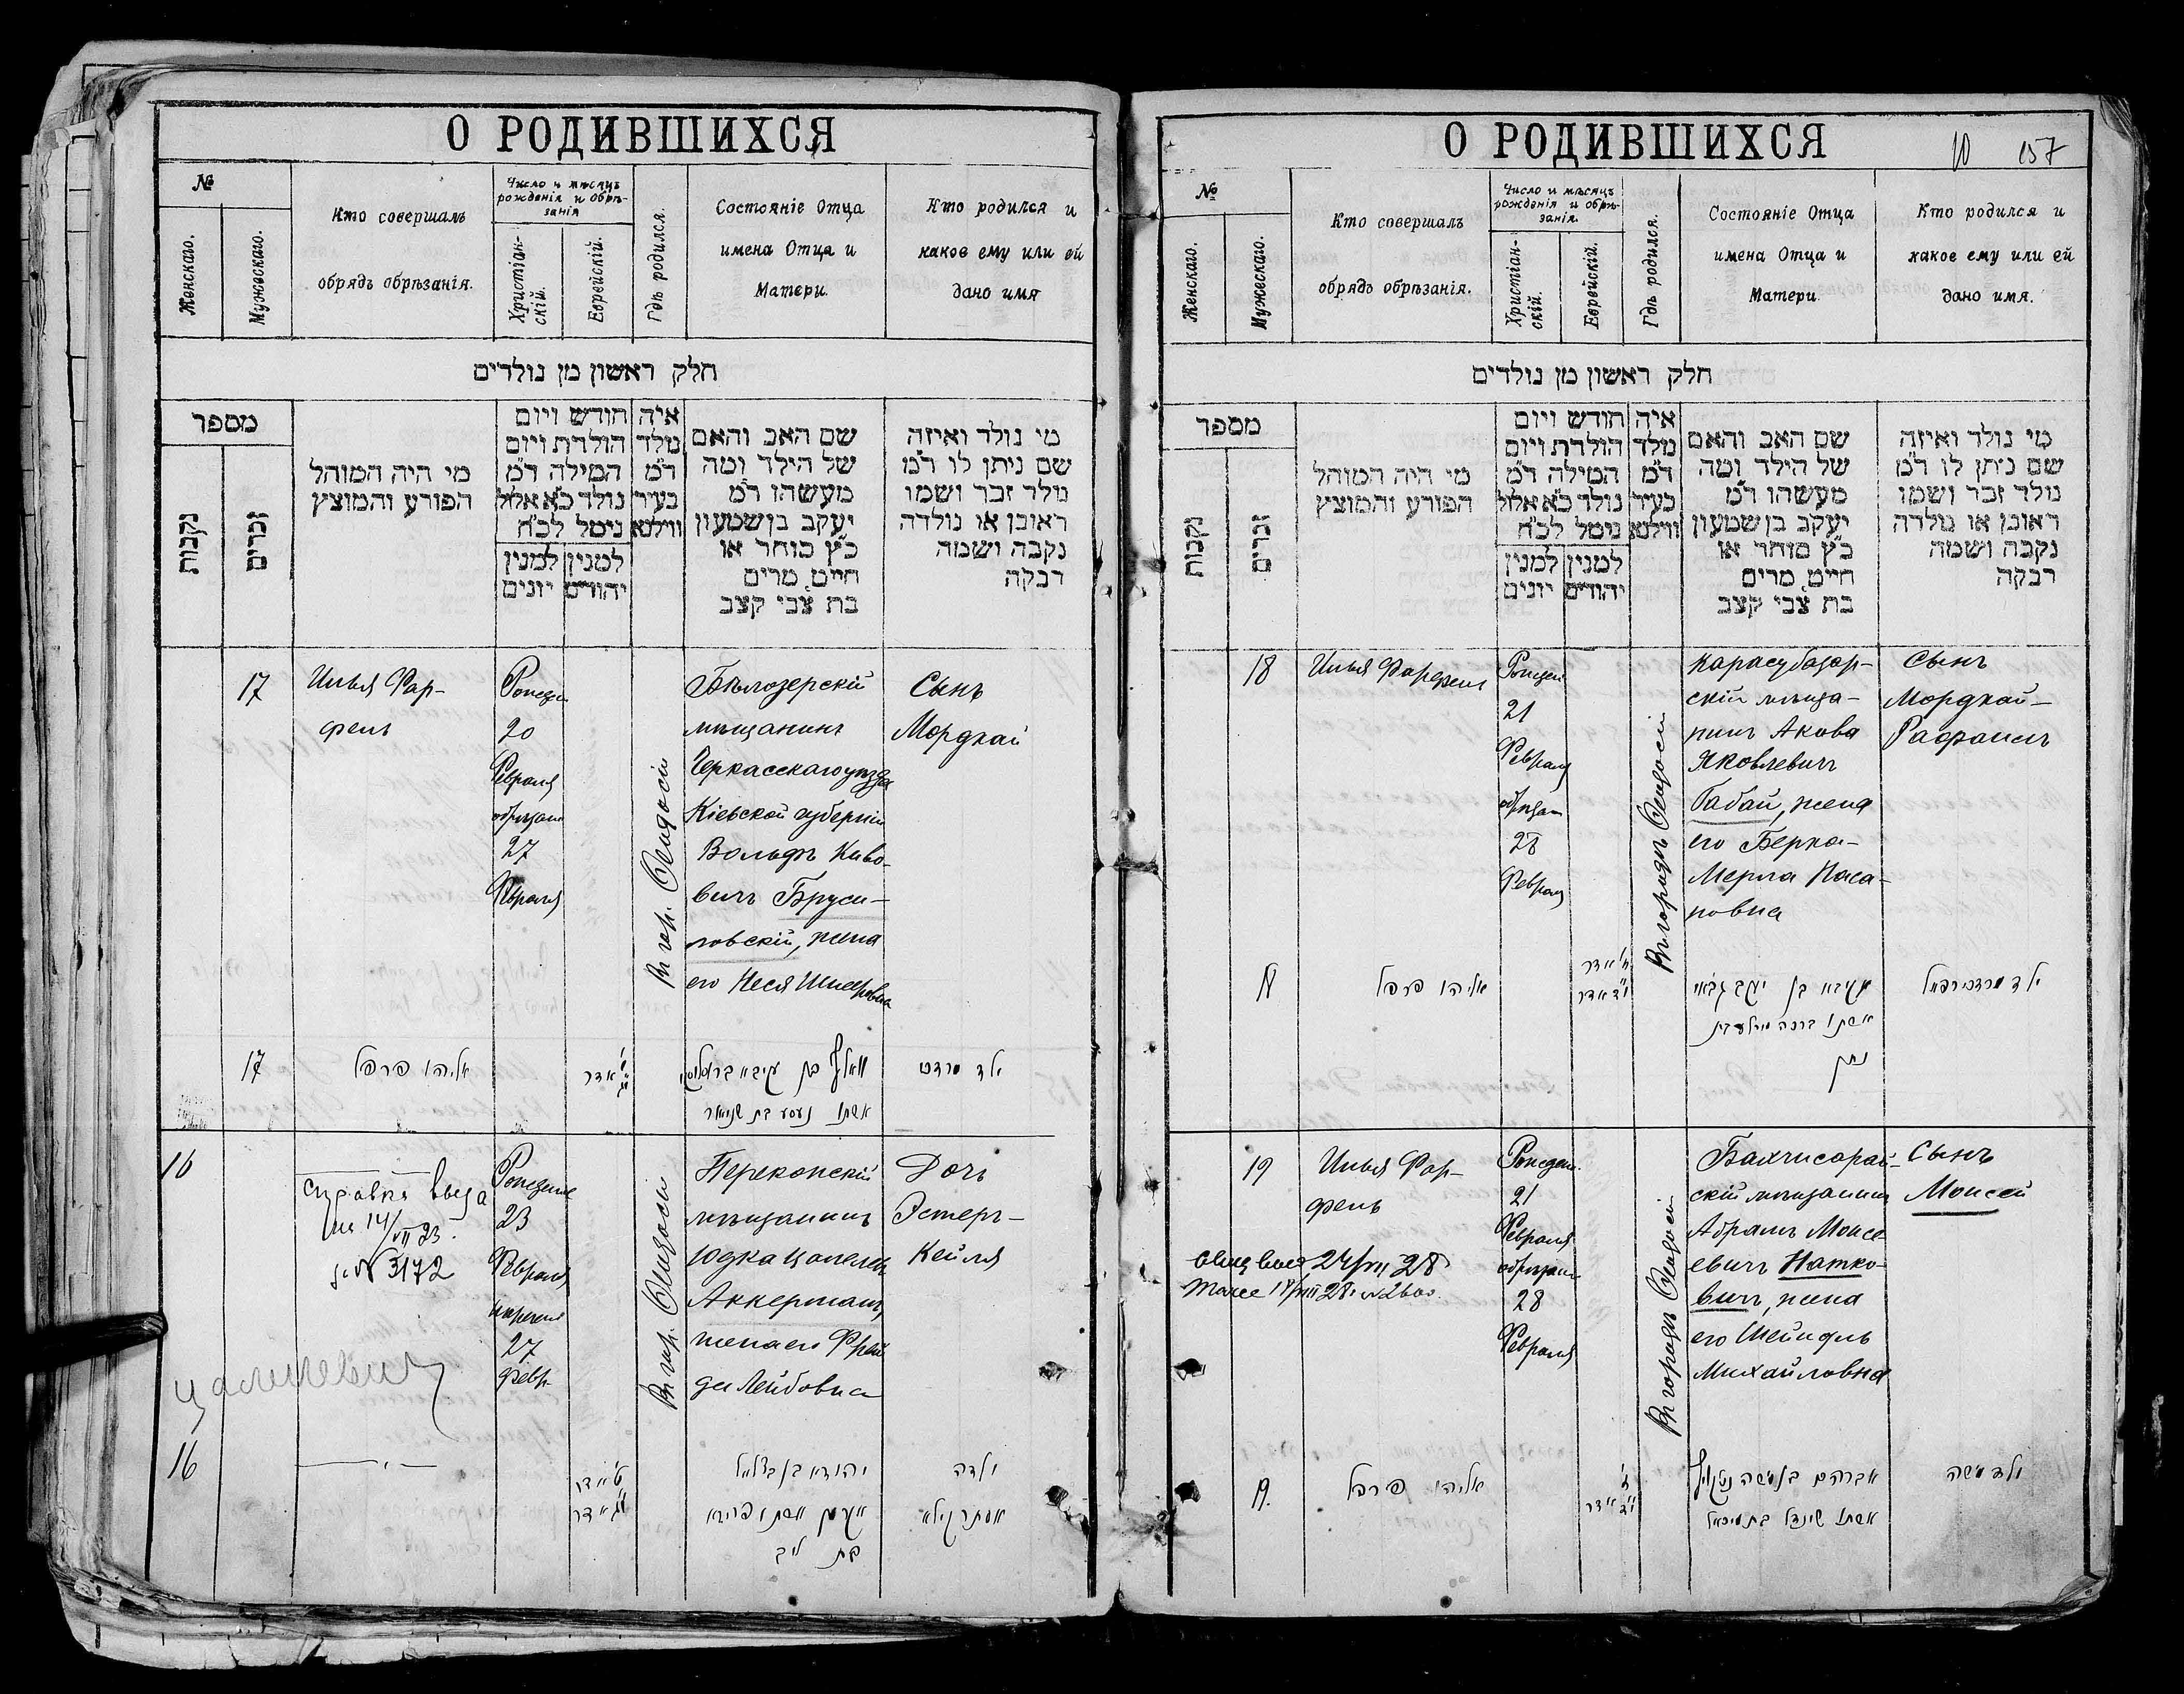 О РОДИВШИХСЯ
№
Женскаго.
Мужескаго.
Кто совершалъ
обрядъ обрѣзанія.
Число и мѣсяцъ
рожденія и обрѣ-
занія
Христіан-
скій.
Еврейскій.
Гдѣ родился.
Состояніе Отца
имена Отца и
Матери.
Кто родился и
какое ему или ей
дано имя
חלק ראשון מן נולדים
מספר
נקבות
זכרים
מי היה המוהל
הפורע והמוצץ
חודש ויום
הולדת ויום
המילה ד"מ
נולד כ"א אלול
נימל לכ"ח
למנין
יהודים
למנין
יונים
איה
נולד
ד"מ
בעיר
ווילנא
שם האב והאם
של הילד ומה
מעשהו ד"מ
יעקב בן שמעון
כ"ץ סוחר או
חייט מרים
בת צבי קצב
מי נולד ואיזה
שם ניתן לו ד"מ
נולד זכר ושמו
ראובן או נולדה
נקבה ושמה
רבקה
17
Илья Фар-
фель
20
Февраля
27
Февраля
Въ гор. Ѳеодосіи
Бѣлозерскій
мѣщанинъ
Черкасскаго уѣзда
Кіевской губерніи
Вольфъ Киво-
вичъ Бруси-
ловскій, жена
его Неся Шнеровна
Сынъ
Мордхай
17
אליהו פרפל
אדר
אשתו נעסע בת שניאור
ילד מרדכי
16
справка выда
на 14/VII 23.
за № 3172
23
Февраля
наречена
27
Февр.
Въ гор. Ѳеодосіи
Перекопскій
мѣщанинъ
Юдка Цалелев
Аккерманъ,
жена его Фрей
да Лейбовна
Дочь
Эстеръ-
Кейля
16
ט' אדר
י"ג אדר
יהודא בן בצלאל
אקרמן אשתו פריידא
בת ליב
ילדה
אסתר קיילא
О РОДИВШИХСЯ
10 157
№
Женскаго.
Мужескаго.
Кто совершалъ
обрядъ обрѣзанія.
Число и мѣсяцъ
рожденія и обрѣ-
занія.
Христіан-
скій.
Еврейскій.
Гдѣ родился.
Состояніе Отца
имена Отца и
Матери.
Кто родился и
какое ему или ей
дано имя.
חלק ראשון מן נולדים
מספר
נקבות
זכרים
מי היה המוהל
הפורע והמוצץ
חודש ויום
הולדת ויום
המילה ד"מ
נולד כ"א אלול
נימל לכ"ח
למנין
יהודים
למנין
יונים
איה
נולד
ד"מ
בעיר
ווילנא
שם האב והאם
של הילד ומה
מעשהו ד"מ
יעקב בן שמעון
כ"ץ סוחר או
חייט מרים
בת צבי קצב
מי נולד ואיזה
שם ניתן לו ד"מ
נולד זכר ושמו
ראובן או נולדה
נקבה ושמה
רבקה
18
Илья Фарфель
21
Февраля
28
Февраля
Въ городѣ Ѳеодосіи
Карасубазар-
скій мѣща-
нинъ Акова
Яковлевичъ
Габай, жена
его Берха-
Мерла Наса-
новна
Сынъ
Мордхай-
Рафаилъ
18
אליהו פרפל
י"ד אדר
עקיבא בן יעקב גבאי
אשתו ברכה מירלע בת
נתן
ילד מרדכי רפאל
19
Илья Фар-
фель
24/VII 28
21
Февраля
28
Февраля
Въ городѣ Ѳеодосіи
Бахчисарай-
скій мѣщанинъ
Абрамъ Моисе-
евичъ Натко-
вичъ, жена
его Шейндль
Михайловна
Сынъ
Моисей
19.
אליהו פרפל
י"ד אדר
אברהם בן משה נטקוויץ
אשתו שיינדל בת מיכאל
ילד משה